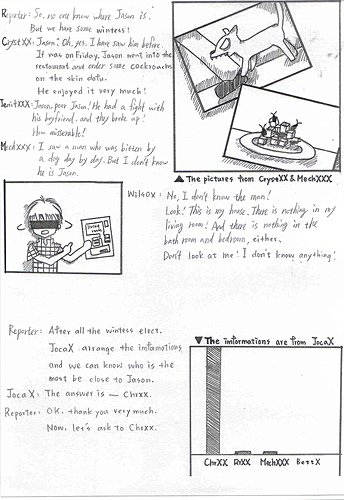 Reporter: So, no one know where Jason is!
But we have some wintess!
CrystXX: Jason? Oh, yes. I have saw him before.
It was on Friday, Jason went into the
restaurant and order some cockroachs
on the skin dofu.
He enjoyed it very much!
Jason, poor Jason! He had a fight with
his boyfriend. and they broke up!
How misserable!
MechXXX: I saw a man who was bitten by
a dog day by day. But I don't know
he is Jason.
▲ The pictures from CrystXX & MechXXX
Wilsox: No, I don't know the man!
Look! This is my house. There is nothing in my
living room! And there is nothing in the
bath room and bedroom, either.
Don't look at me! I don't know anything!
Reporter: After all the wintess elect.
JocaX arrange the informations
and we can know who is the
most be close to Jason.
JocaX: The answer is — Chrxx.
Reporter: OK. thank you very much.
Now, let's ask to Chrxx.
▼ The imformations are from JocaX
ChrXX RiXX MechXXX BettX